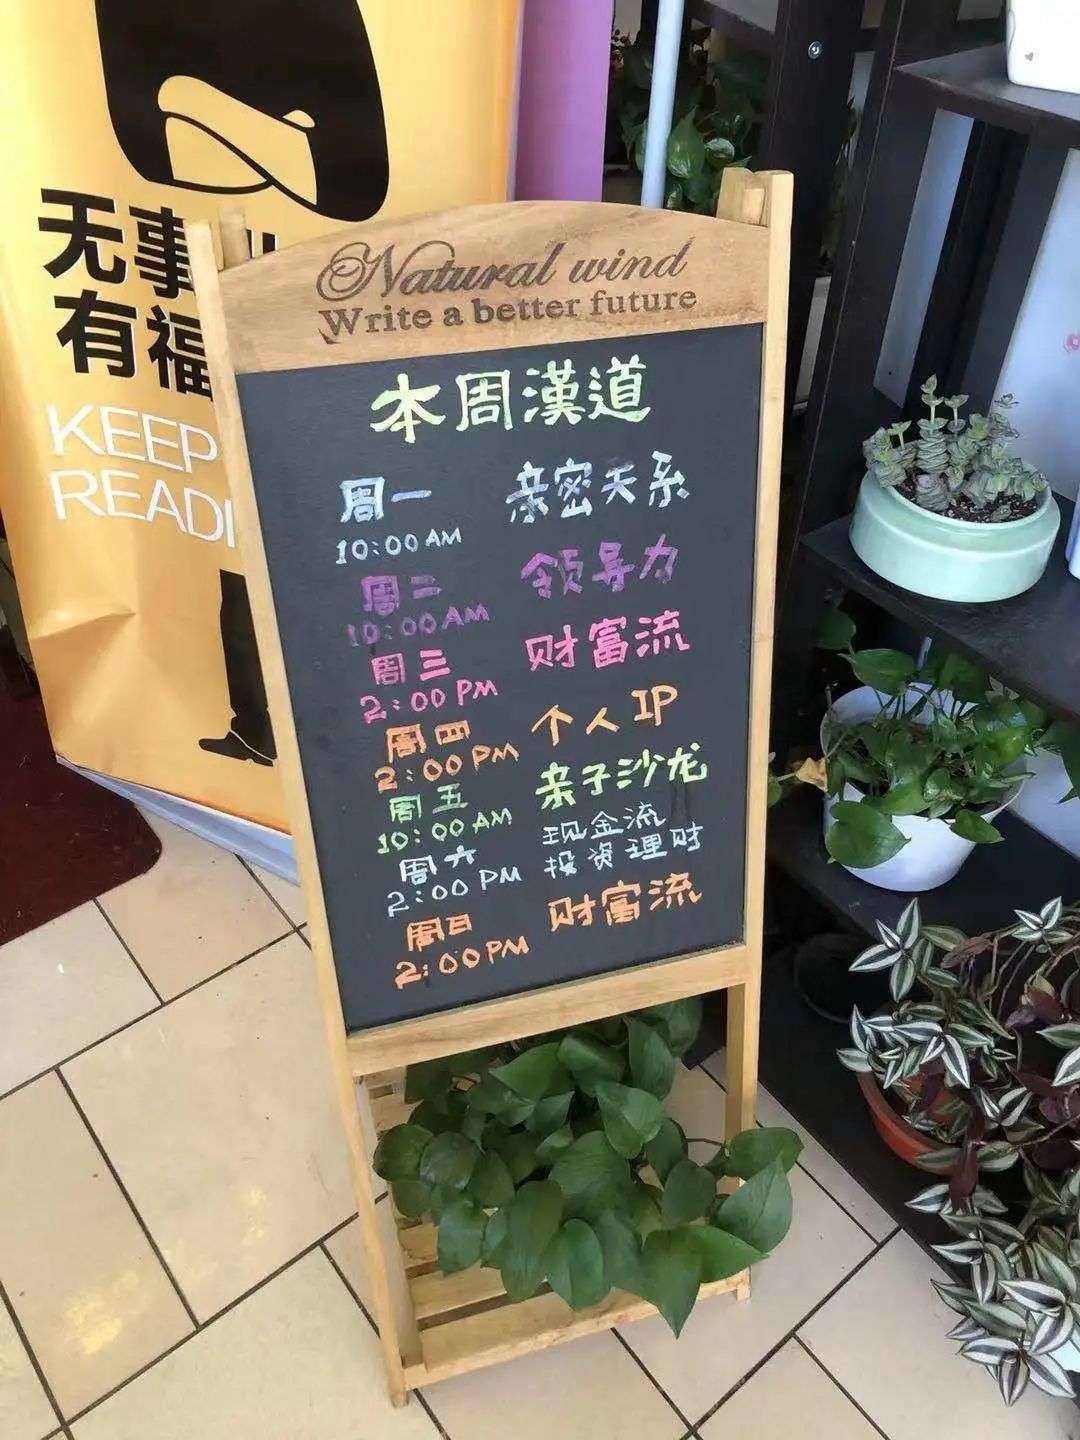 无事
有福
KEEP
READI
Natural wind
Write a better future
本周漢道
周一 亲密关系
10:00 AM
周二 领导力
10:00 AM
周三 财富流
2:00 PM
周四 个人IP
2:00 PM
周五 亲子沙龙
10:00 AM
周六 现金流
2:00 PM 投资理财
周日 财富流
2:00 PM